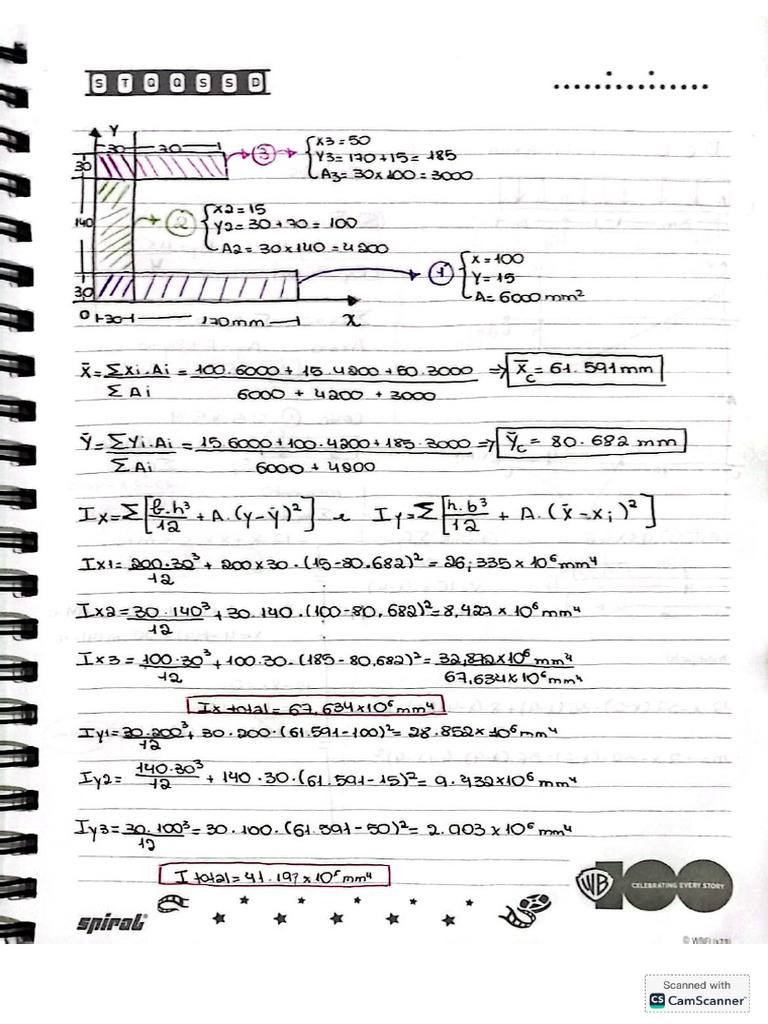 S T Q Q S S D
Y
30 70
30
3
X3 = 50
Y3 = 170 + 15 = 185
A3 = 30 x 100 = 3000
140
2
X2 = 15
Y2 = 30 + 70 = 100
A2 = 30 x 140 = 4200
1
X = 100
Y = 15
A = 6000 mm²
30
0 30 170 mm X
X̄ = ΣXi.Ai / ΣAi = 100.6000 + 15.4200 + 50.3000 / 6000 + 4200 + 3000 => X̄c = 61.591 mm
Ȳ = ΣYi.Ai / ΣAi = 15.6000 + 100.4200 + 185.3000 / 6000 + 4200 => Ȳc = 80.682 mm
Ix = Σ[b.h³/12 + A.(y-ȳ)²] e Iy = Σ[h.b³/12 + A.(x̄-xi)²]
Ix1 = 200.30³/12 + 200x30.(15-80.682)² = 26,335 x 10⁶ mm⁴
Ix2 = 30.140³/12 + 30.140.(100-80,682)² = 8,427 x 10⁶ mm⁴
Ix3 = 100.30³/12 + 100.30.(185-80,682)² = 32,872 x 10⁶ mm⁴
67,634 x 10⁶ mm⁴
Ix total = 67,634 x 10⁶ mm⁴
Iy1 = 30.200³/12 + 30.200.(61.591-100)² = 28.852 x 10⁶ mm⁴
Iy2 = 140.30³/12 + 140.30.(61.591-15)² = 9.432 x 10⁶ mm⁴
Iy3 = 30.100³/12 = 30.100.(61.591-50)² = 2.903 x 10⁶ mm⁴
I total = 41.197 x 10⁶ mm⁴
WB 100 CELEBRATING EVERY STORY
spiral
Scanned with
CS CamScanner